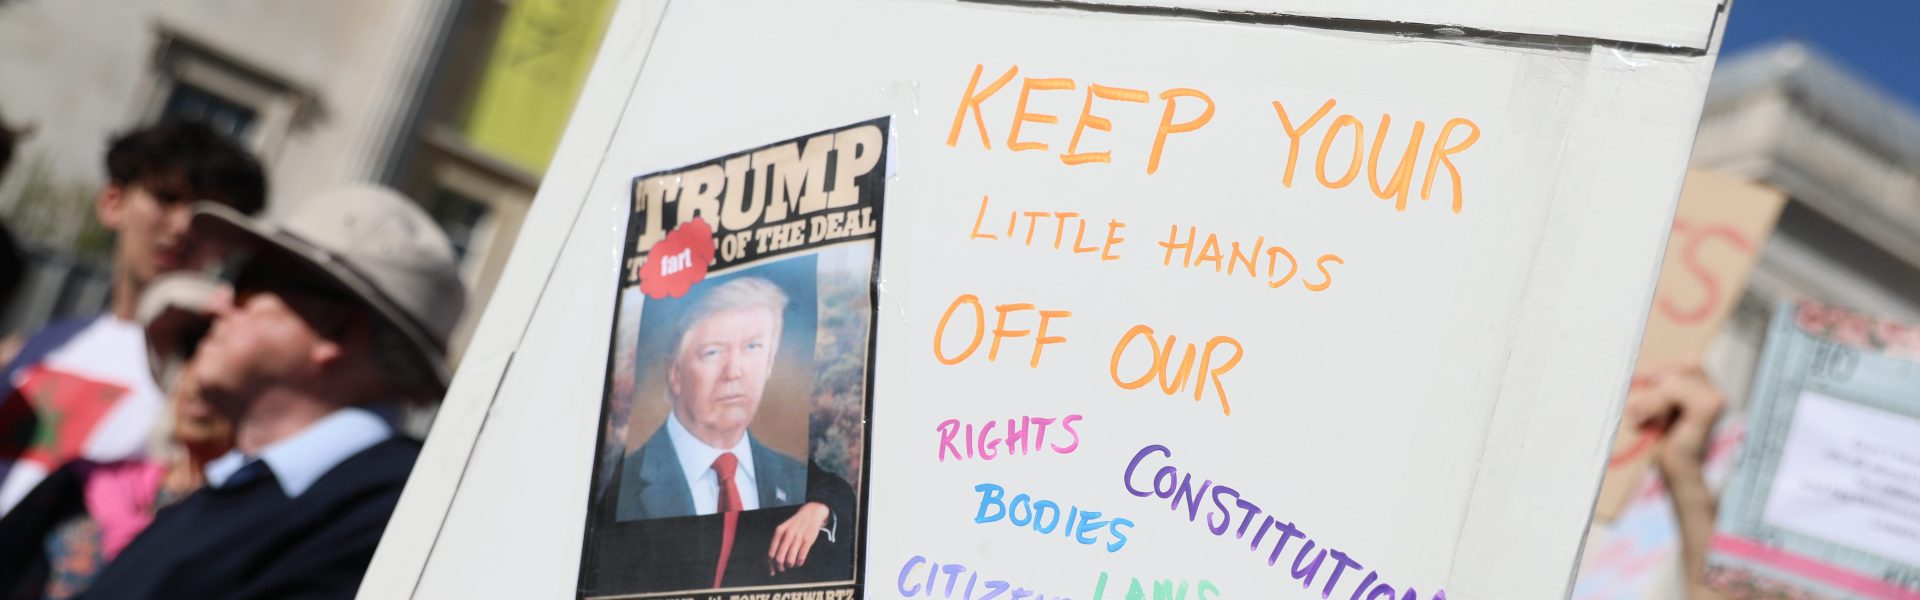 TRUMP
fart
OF THE DEAL
TONY SCHWARTZ
KEEP YOUR
LITTLE HANDS
OFF OUR
RIGHTS
CONSTITUTION
BODIES
LAWS